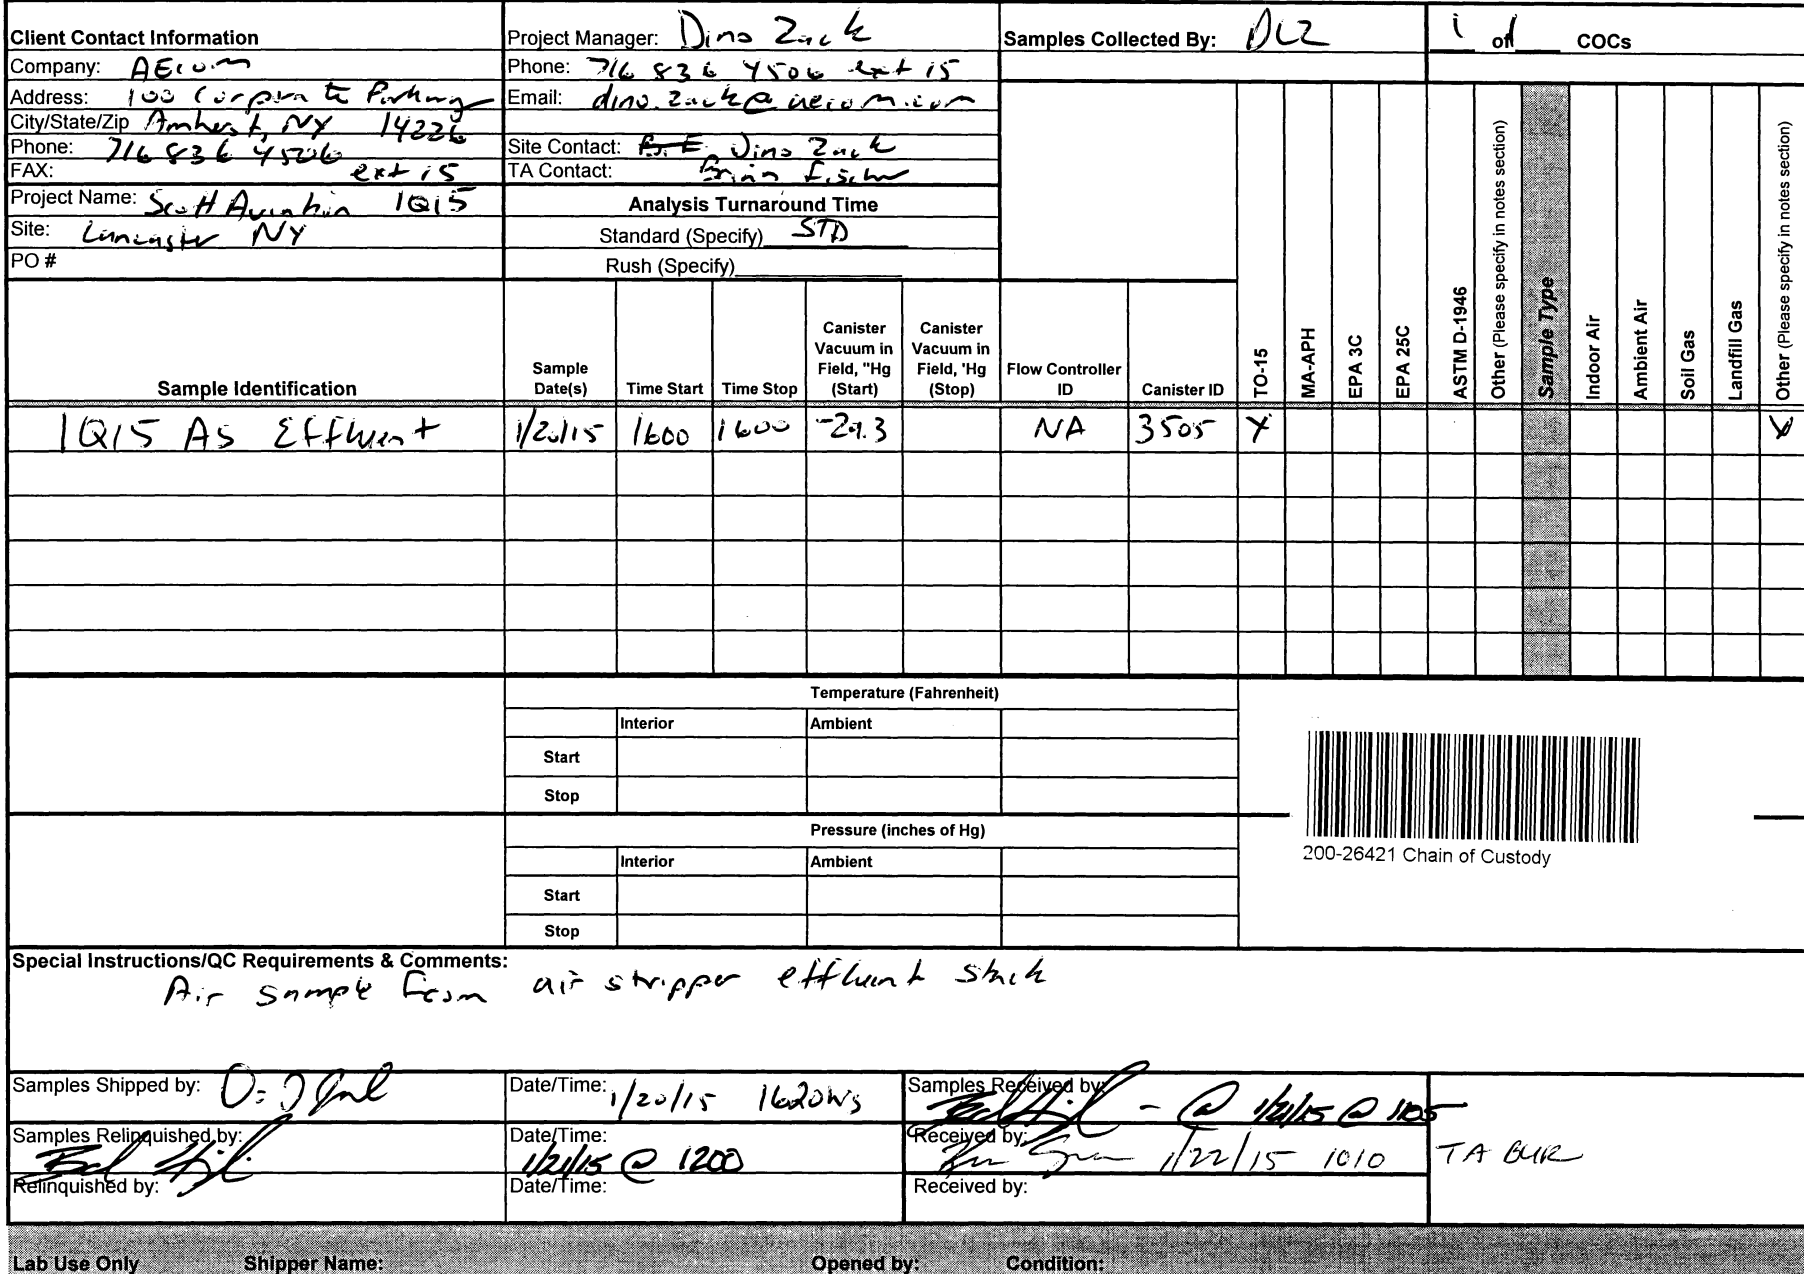 Client Contact Information
Company: AECOM
Address: 100 Corporate Parkway
City/State/Zip Amherst, NY 14226
Phone: 716 836 4506
FAX: ext 15
Project Name: Scott Aviation 1Q15
Site: Lancaster NY
PO #
Project Manager: Dino Zack
Phone: 716 836 4506 ext 15
Email: dino.zack@aecom.com
Site Contact: Dino Zack
TA Contact: Brian Fischer
Analysis Turnaround Time
Standard (Specify) STD
Rush (Specify)
Samples Collected By: DLZ
1 of 1 COCs
Sample Identification
Sample Date(s)
Time Start
Time Stop
Canister Vacuum in Field, "Hg (Start)
Canister Vacuum in Field, 'Hg (Stop)
Flow Controller ID
Canister ID
TO-15
MA-APH
EPA 3C
EPA 25C
ASTM D-1946
Other (Please specify in notes section)
Sample Type
Indoor Air
Ambient Air
Soil Gas
Landfill Gas
Other (Please specify in notes section)
1Q15 AS Effluent 1/20/15 1600 1600 -29.3 NA 3505 X X
Temperature (Fahrenheit)
Interior Ambient
Start
Stop
Pressure (inches of Hg)
Interior Ambient
Start
Stop
200-26421 Chain of Custody
Special Instructions/QC Requirements & Comments:
Air sample from air stripper effluent stack
Samples Shipped by:
Date/Time: 1/20/15 1620
Samples Received by: - @ 1/21/15 @ 1105
Samples Relinquished by:
Date/Time: 1/21/15 @ 1200
Received by: 1/22/15 1010
TA BUR
Relinquished by:
Date/Time:
Received by:
Lab Use Only Shipper Name: Opened by: Condition: